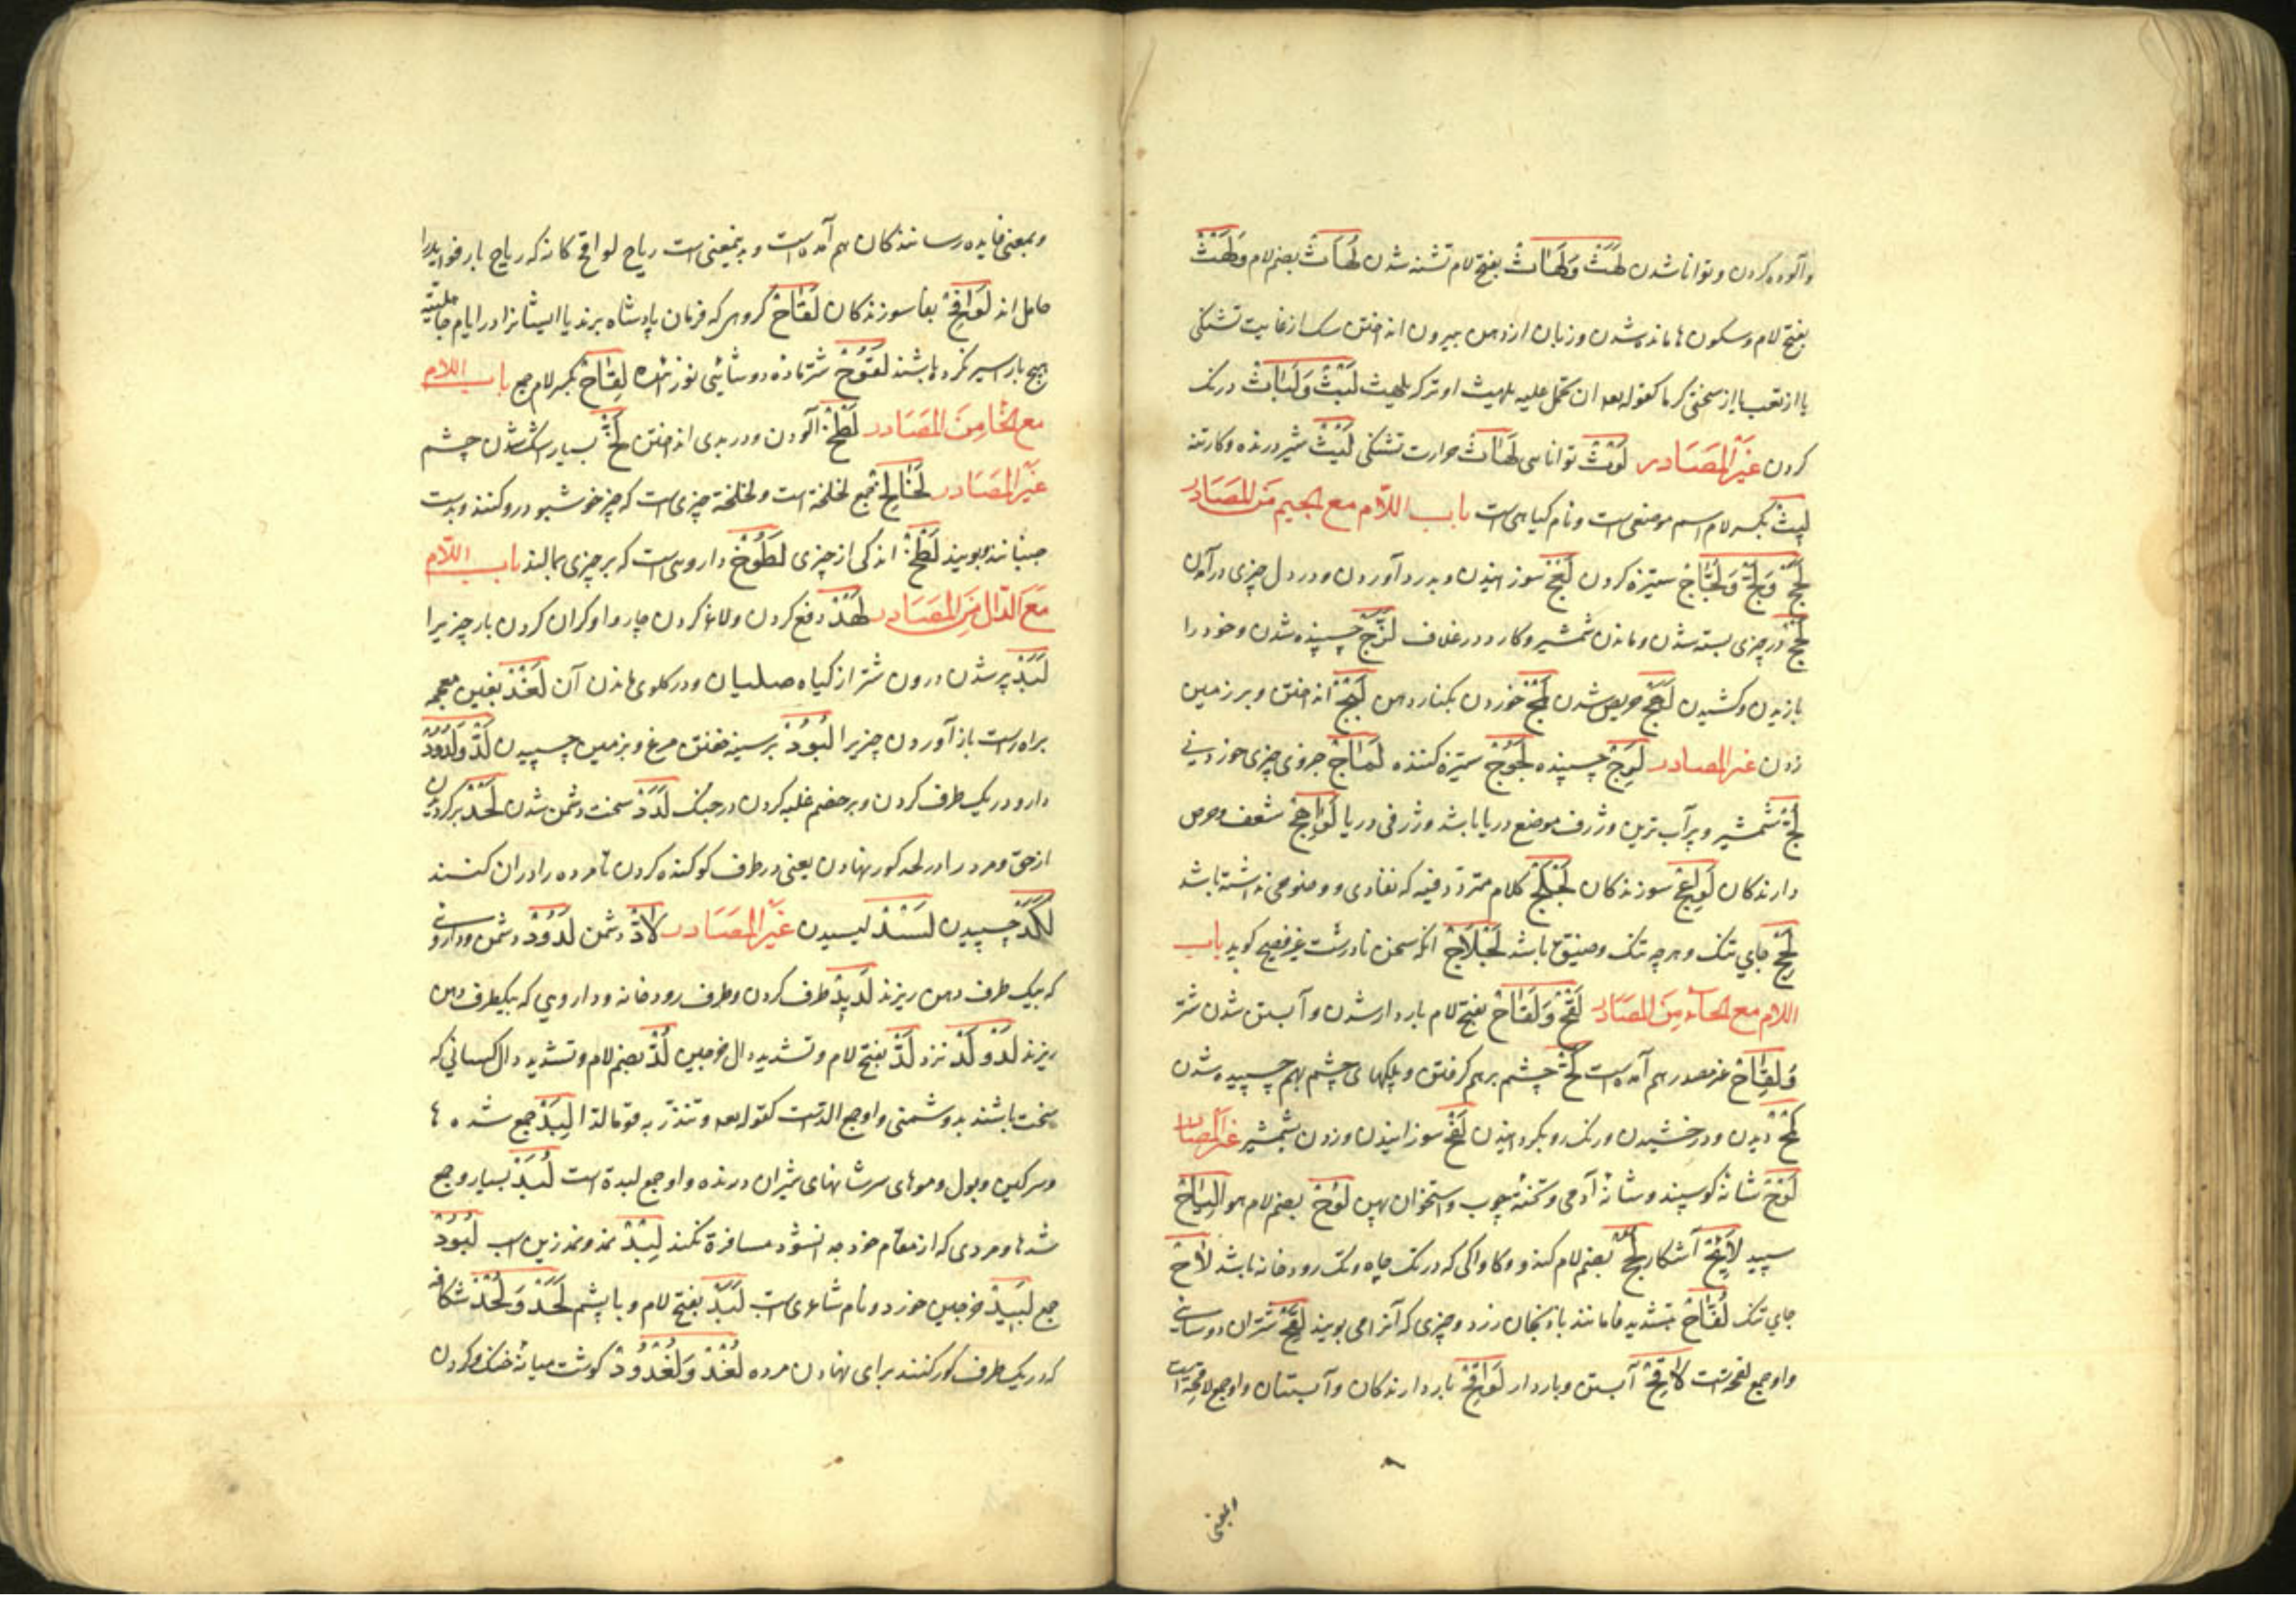 وآلوده کردن وتوانا شدن لَهَثْ وَلَهَاثْ بفتح لام تشنه شدن لُهَاثْ بضم لام وَلَهْثْ
بفتح لام وسکون ها مانده شدن وزبان از دهن بیرون انداختن سک از غایت تشنکی
یا از تعب یا از سختی کرما کقوله تعه ان تحمل علیه یلهث او تترکه یلهث لَبْثْ وَلَبَاثْ درنک
کردن غَیْرَ المَصَادر لَوْثْ توانایی لَهَاثْ حرارت تشنکی لَیْثْ شیر درنده وکارتنه
لِیثْ بکسر لام اسم موضعی است ونام کیاهی است باب اللّام مع الجیم مَنَ المَصَادِر
لَجَجْ وَلَجّْ وَلَجَاجْ ستیزه کردن لَعْجْ سوزانیدن وبدرد آوردن ودر دل چیزی درآمدن
لَحْجْ در چیزی بسته شدن وماندن شمشیر وکارد در غلاف لَزَجْ چسپنده شدن وخود را
یازیدن وکشیدن لَهَجْ حریص شدن لَمْجْ خوردن بکنار دهن لَبْجْ انداختن وبر زمین
زدن غیر المصادر لَزِجْ چسپنده لَجُوجْ ستیزه کننده لَمَاجْ جزوی چیزی خوردنی
لُجّْ شمشیر وپرآب ترین وژرف موضع دریا باشد وژرفی دریا لَوَاهِجْ شعف وحرص
دارندکان لَوَاعِجْ سوزندکان لَجْلَجْ کلام متردد فیه که نفاذی ووضوحی نداشته باشد
لَحِجْ جای تنک وهرچه تنک وضیق باشد لَجْلَاجْ انکه سخن نادرست غیر فصیح کوید باب
اللام مع الحآء مِنَ المصَادر لَقْحْ وَلَقَاحْ بفتح لام باردار شدن وآبستن شدن شتر
وَلِقَاحْ غیر مصدر هم آمده است لَحَحْ چشم برهم کرفتن وپلکهای چشم بهم چسپیده شدن
لَمْحْ دیدن ودرخشیدن ورنک رو بکردانیدن لَفْحْ سوزانیدن وزدن بشمشیر غیر المصادر
لَوْحْ شانهٔ کوسپند وشانهٔ آدمی وتختهٔ چوب واستخوان پهن لُوْحْ بضم لام هوا لِیَاحْ
سپید لاَیِحْ آشکار لُجْحْ بضم لام کند وکاواکی که در تک چاه وتک رودخانه باشد لاَحْ
جای تنک لُفَّاحْ بتشدید فا مانند بادنجان زرد وچیزی که آنرا می بویند لِقَحْ شتران دوشائی
واو جمع لقحه است لاَقِحْ آبستن وباردار لَوَاقِحْ باردارندکان وآبستنان واو جمع لاقحة است
وبمعنی فایده رسانندکان هم آمده است وبدینمعنی است ریاح لواقح کانه که ریاح بار فواید را
حامل اند لَوَافِحْ بفا سوزندکان لَقَاحْ کروهی که فرمان پادشاه برند یا ایشانرا در ایام جاهلیته
هیچ بار اسیر نکرده باشند لَقُوحْ شتر ماده دوشائی نوزائیده لِقَاحْ بکسر لام جمع باب اللام
مع الخا مِنَ المَصَادر لَطْخْ آلودن ودر بدی انداختن لَخّْ بسیار اشک شدن چشم
غَیْرَ المَصَادر لَخَالِخْ جمع لخلخه است ولخلخه چیزی است که چیز خوشبو درو کنند وبدست
جنبانند وبویند لَطْخْ اندکی از چیزی لَطُوخْ داروی است که بر چیزی بمالند باب اللّام
مَعَ الدّال مِنَ المَصَادر لَهْدْ دفع کردن ولاغر کردن چاروا وکران کردن بار چیزیرا
لَبَدْ پر شدن درون شتر از کیاه صلیان ودر کلوی ماندن آن لَغْدْ بغین معجمه
براه راست باز آوردن چیزیرا لُبُودْ بر سینه خفتن مرغ وبزمین چسپیدن لَدّْ وَلُدُودْ
دارو در یک طرف کردن وبر خصم غلبه کردن در جنک لَدَدْ سخت دشمن شدن لَحْدْ برکردیدن
از حق ومرد را در لحد کور نهادن یعنی در طرف کو کنده کردن تا مرده را در ان کنند
لَکَدْ چسپیدن لَسْدْ لیسیدن غَیْرَ المَصَادر لاَدّْ دشمن لَدُودْ دشمن وداروئی
که بیک طرف دهن ریزند لَدِیدْ طرف کردن وطرف رودخانه وداروی که بیکطرف دهن
ریزند لَدُوْ لَدْ نزد لَدّْ بفتح لام وتشدید دال خرجین لُدّْ بضم لام وتشدید دال کسانی که
سخت باشند بدوشمنی واو جمع الدّست کقوله تعه وتنذر به قوما لدا لِبَدْ جمع شده ها
وسرکین وبول وموهای سر شانهای شیران درنده واو جمع لبدة است لُبَدْ بسیار وجمع
شدها ومردی که از مقام خود جدا نشود مسافرة نکند لِبْدْ نمد ونمد زین اسب لُبُودْ
جمع لَبِیدْ خرجین خورد ونام شاعری است لَبَدْ بفتح لام وبا پشم لَحْدْ وَلُحْدْ شکافی
که در یک طرف کور کنند برای نهادن مرده لُغْدْ وَلُغْدُودْ کوشت میانهٔ حنک وکردن